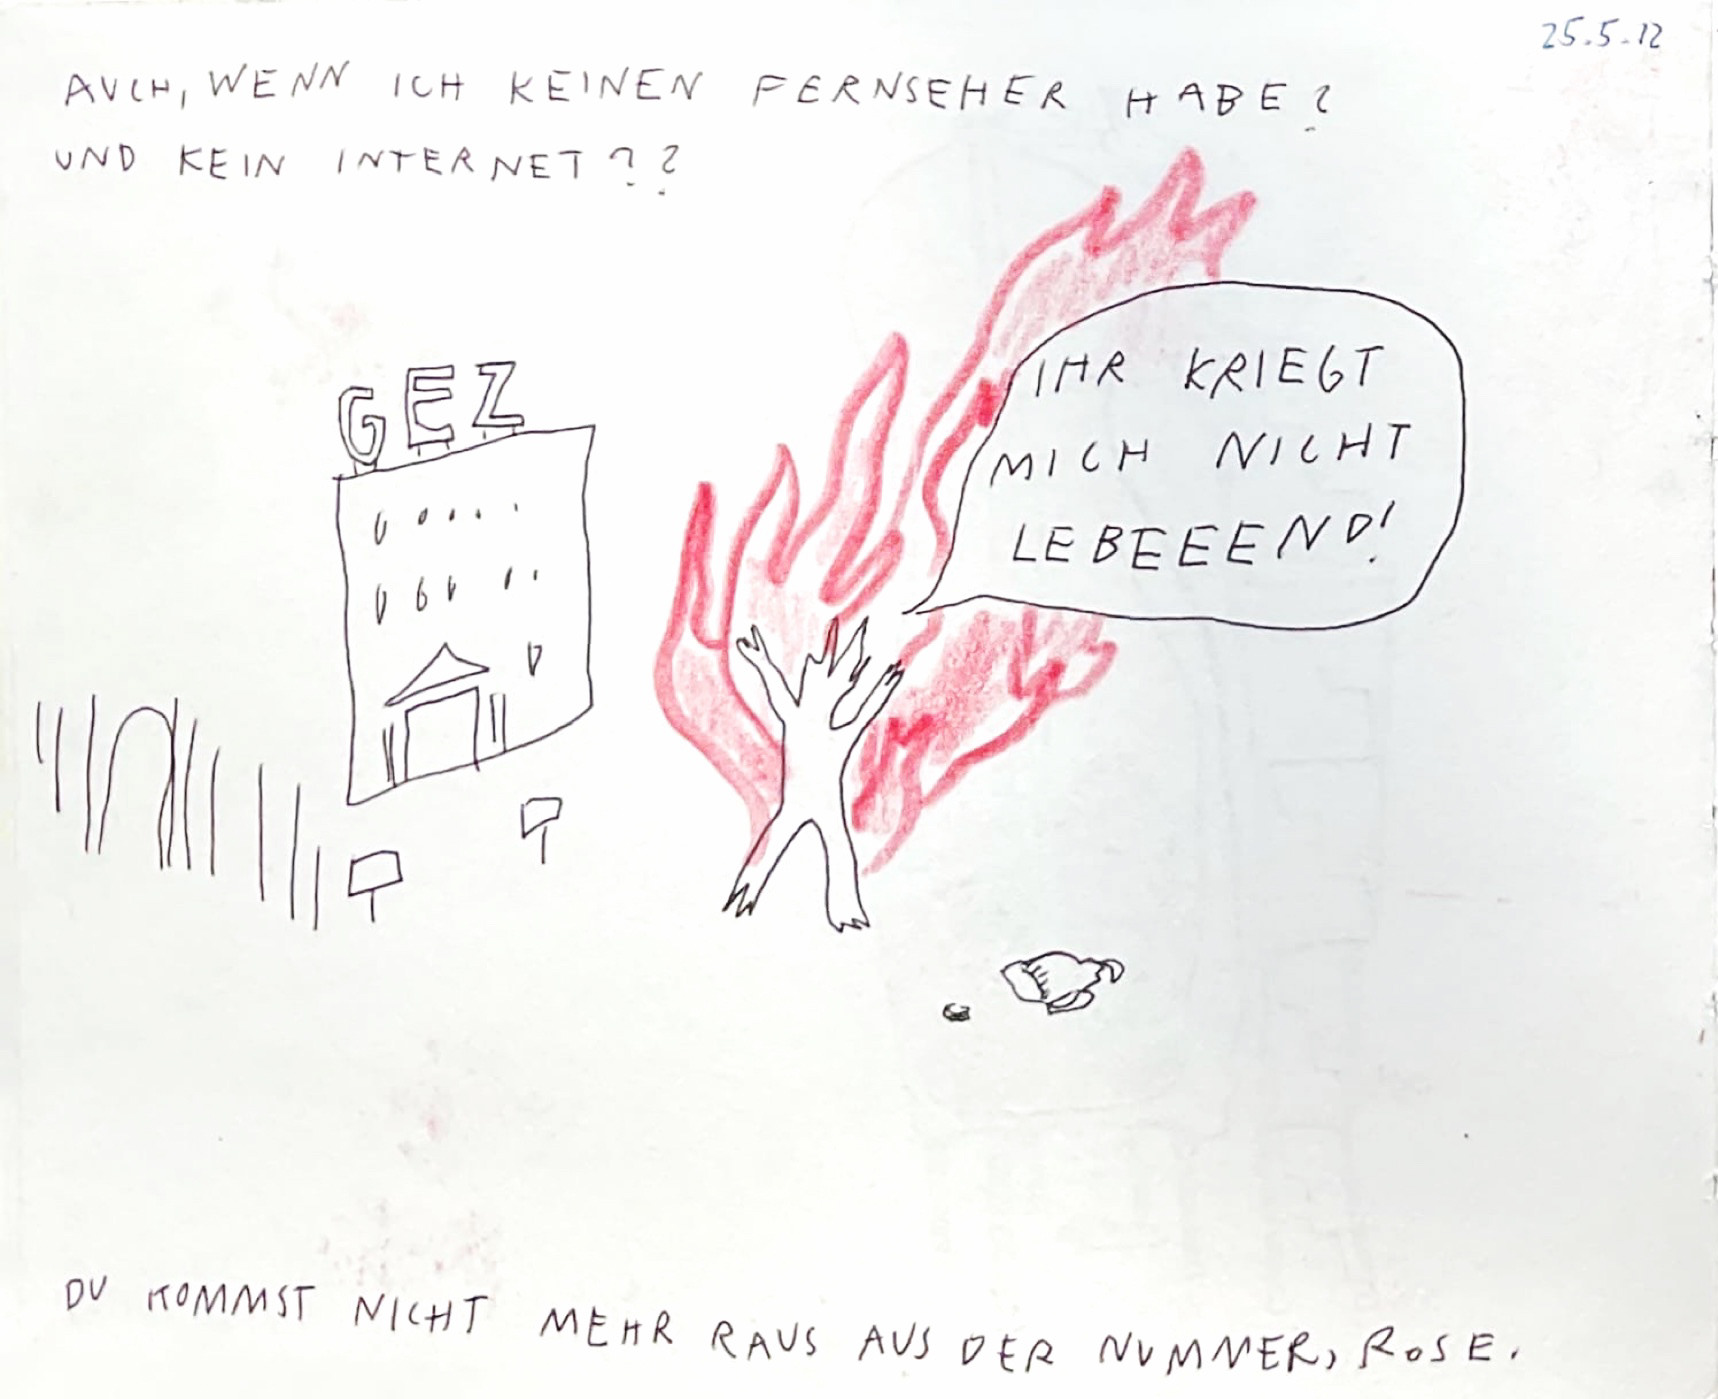 25.5.12
AUCH, WENN ICH KEINEN FERNSEHER HABE?
UND KEIN INTERNET??
GEZ
IHR KRIEGT
MICH NICHT
LEBEEEND!
DU KOMMST NICHT MEHR RAUS AUS DER NUMMER, ROSE.